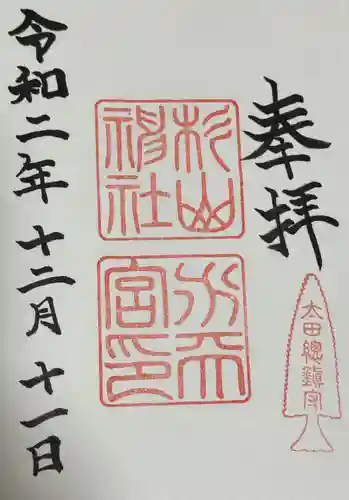 奉拝
太田總鎮守
杉山
神社
水天
宮印
令和二年 十二月 十一日